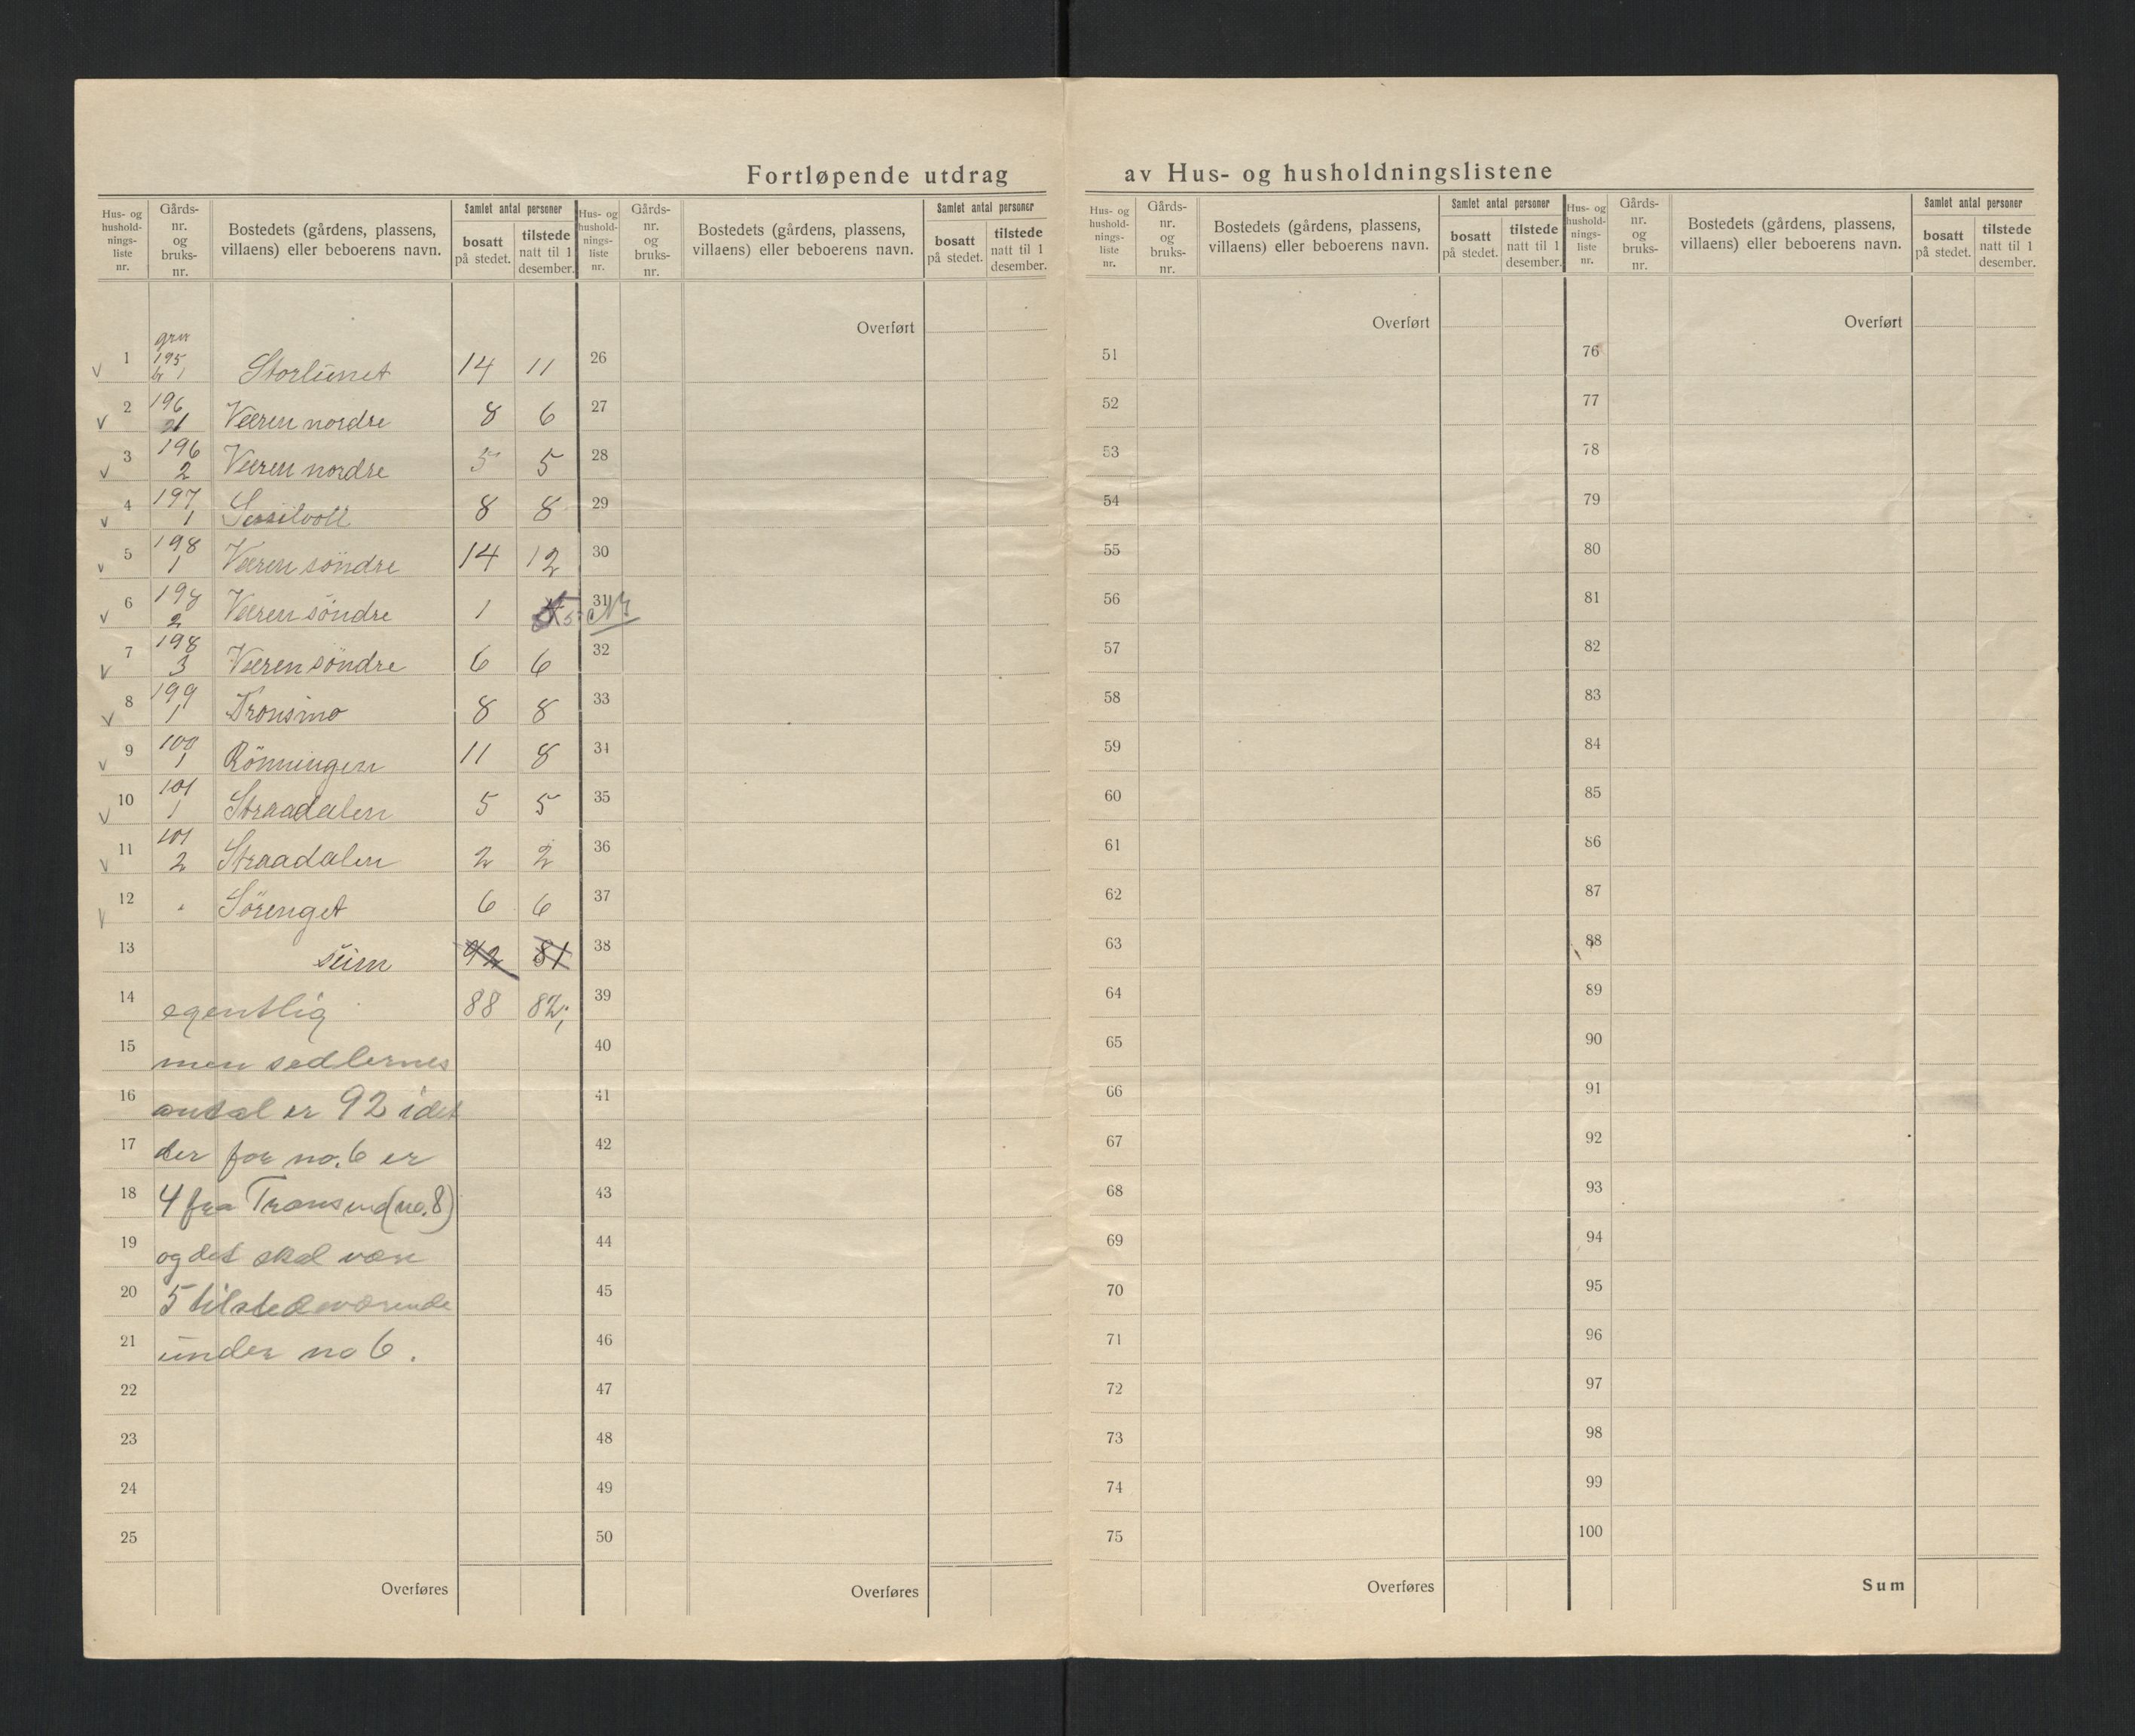 Fortløpende utdrag av Hus- og husholdningslistene
Hus- og hushold-nings-liste nr. Gårds-nr. og bruks-nr. Bostedets (gårdens, plassens, villaens) eller beboerens navn. Samlet antal personer bosatt på stedet. tilstede natt til 1 desember.
Hus- og hushold-nings-liste nr. Gårds-nr. og bruks-nr. Bostedets (gårdens, plassens, villaens) eller beboerens navn. Samlet antal personer bosatt på stedet. tilstede natt til 1 desember.
Hus- og hushold-nings-liste nr. Gårds-nr. og bruks-nr. Bostedets (gårdens, plassens, villaens) eller beboerens navn. Samlet antal personer bosatt på stedet. tilstede natt til 1 desember.
Hus- og hushold-nings-liste nr. Gårds-nr. og bruks-nr. Bostedets (gårdens, plassens, villaens) eller beboerens navn. Samlet antal personer bosatt på stedet. tilstede natt til 1 desember.
Overført Overført Overført
1 195 br 1 Storlunet 14 11 26 51 76
2 196 1 Veeren nordre 8 6 27 52 77
3 196 2 Veeren nordre 5 5 28 53 78
4 197 1 Sessilvoll 8 8 29 54 79
5 198 1 Veeren söndre 14 12 30 55 80
6 198 2 Veeren söndre 1 5 31 56 81
7 198 3 Veeren söndre 6 6 32 57 82
8 199 1 Tronsmo 8 8 33 58 83
9 100 1 Rönningen 11 8 34 59 84
10 101 1 Straadalen 5 5 35 60 85
11 101 2 Straadalen 2 2 36 61 86
12 " Sörenget 6 6 37 62 87
13 sum 92 81 38 63 88
14 egentlig 88 82; 39 64 89
15 men sedlernes 40 65 90
16 antal er 92 idet 41 66 91
17 der for no. 6 er 42 67 92
18 4 fra Tronsmo (no. 8) 43 68 93
19 og det skal være 44 69 94
20 5 tilstedeværende 45 70 95
21 under no 6. 46 71 96
22 47 72 97
23 48 73 98
24 49 74 99
25 50 75 100
Overføres Overføres Overføres Sum